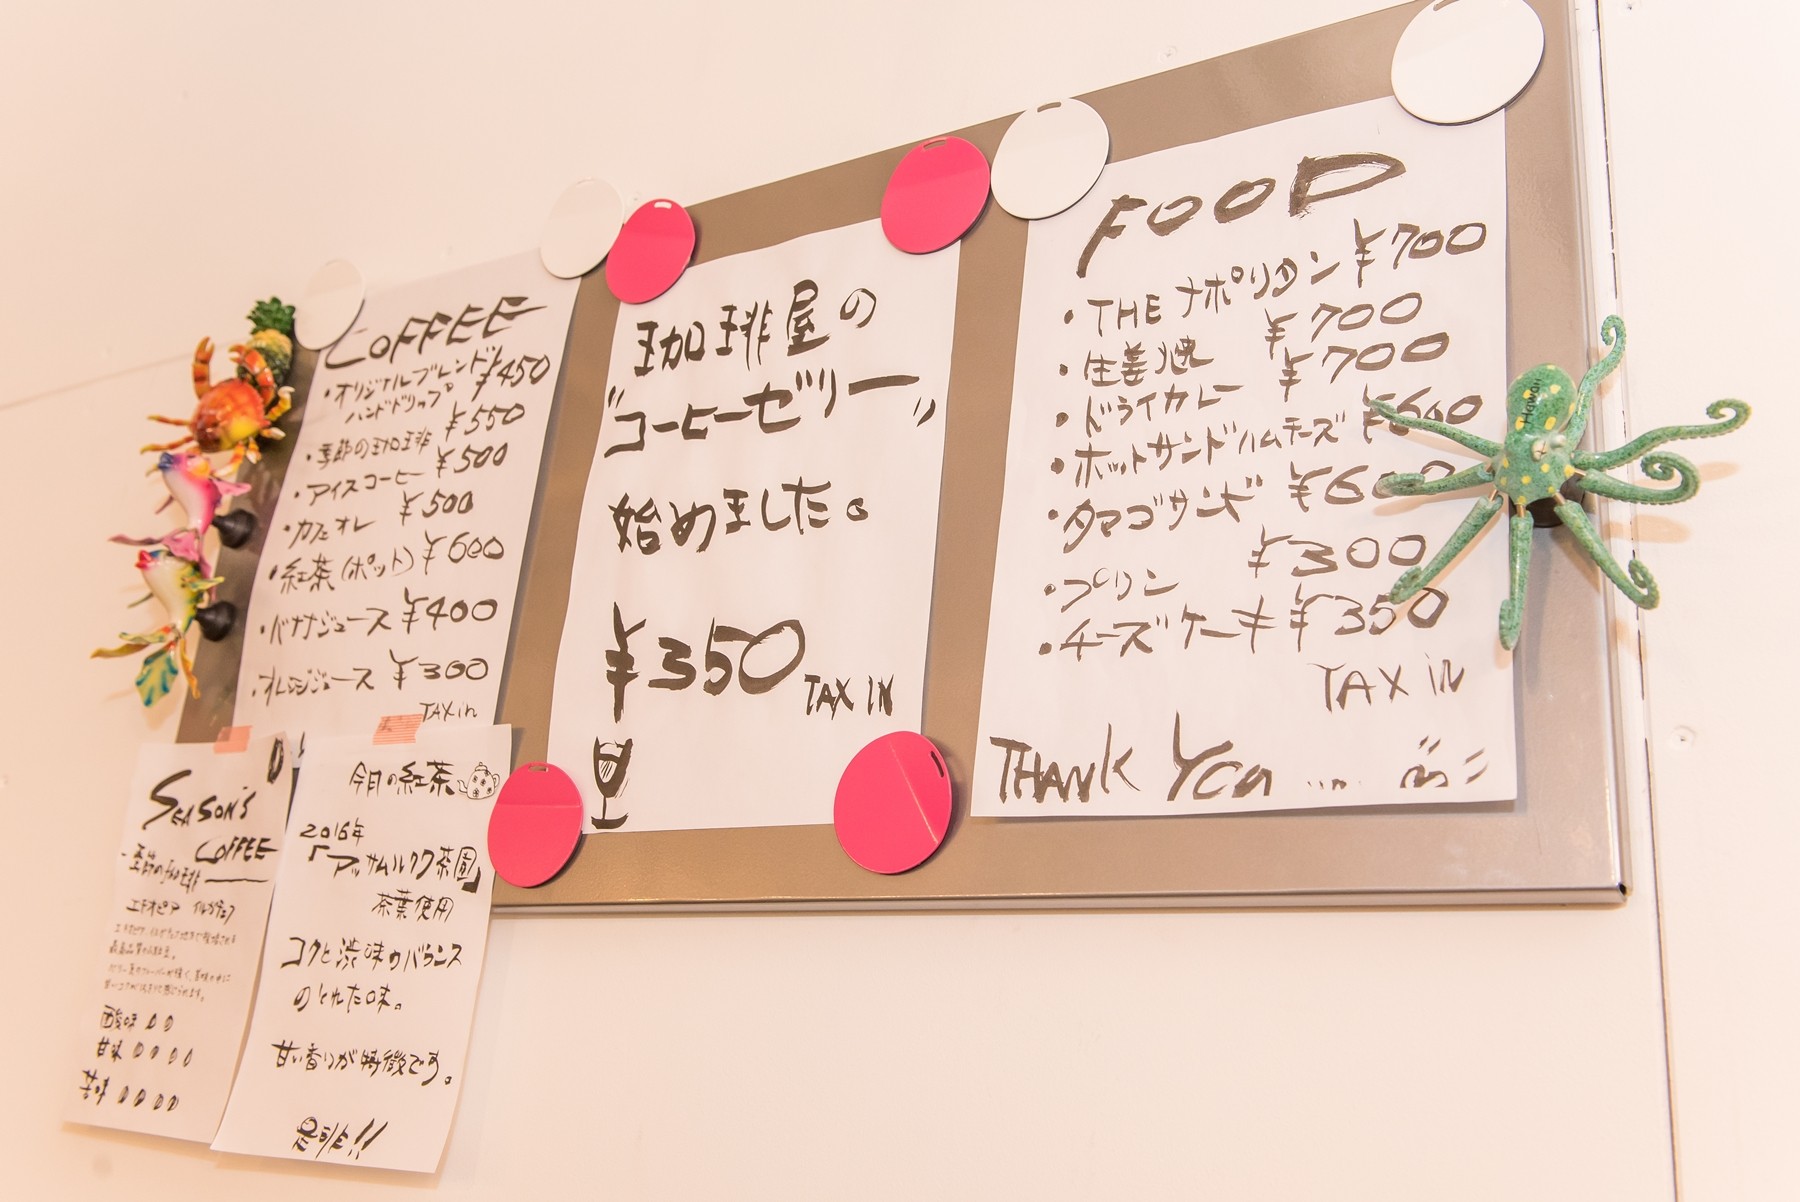 COFFEE
・オリジナルブレンド ¥450
ハンドドリップ
・季節の珈琲 ¥550
・アイスコーヒー ¥500
・カフェオレ ¥500
・紅茶(ポット) ¥600
・バナナジュース ¥400
・オレンジジュース ¥300
TAX in
SEASON'S
COFFEE
季節の珈琲
エチオピア イルガチェフ
酸味
甘味
苦味
今月の紅茶
2016年
「アッサムルクワ茶園」
茶葉使用
コクと渋味のバランス
のとれた味。
甘い香りが特徴です。
是非!!
珈琲屋の
"コーヒーゼリー"
始めました。
¥350 TAX IN
FOOD
・THE ナポリタン ¥700
・生姜焼 ¥700
・ドライカレー ¥700
・ホットサンドハムチーズ ¥600
・タマゴサンド ¥600
・プリン ¥300
・チーズケーキ ¥350
TAX in
THANK YOU ......
Hawaii